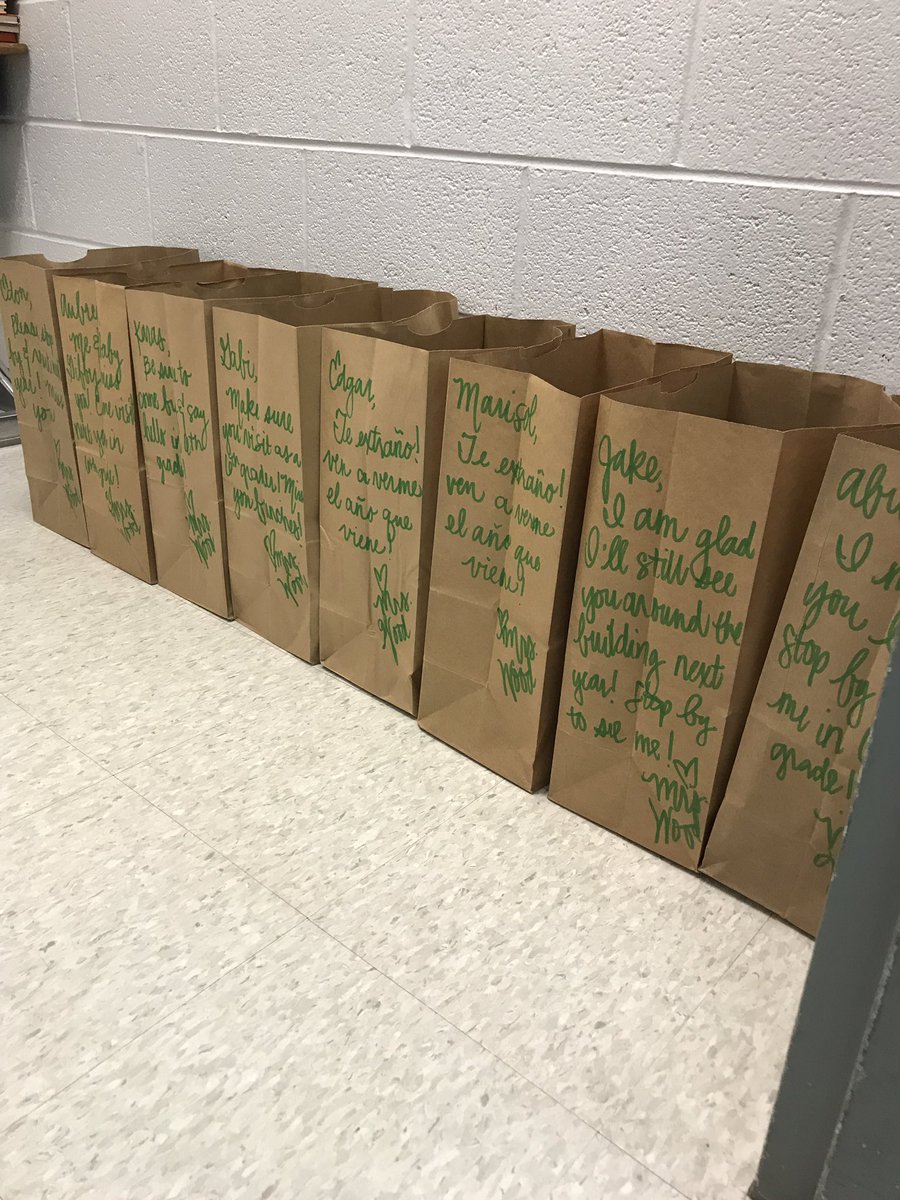 Please stop
you
me &
you!
Be sure to
come by & say
hello in
grade!
Mrs.
Gabi,
Make sure
you visit as a
grader! Miss
you
Mrs.
Edgar,
Te extraño!
ven a verme
el año que
viene!
Mrs.
Wood
Marisol,
Te extraño!
ven a verme
el año que
viene!
Mrs.
Wood
Jake,
I am glad
I'll still see
you around the
building next
year! Stop by
to see me!
Mrs.
Wood
I
you
Stop by
me in
grade!